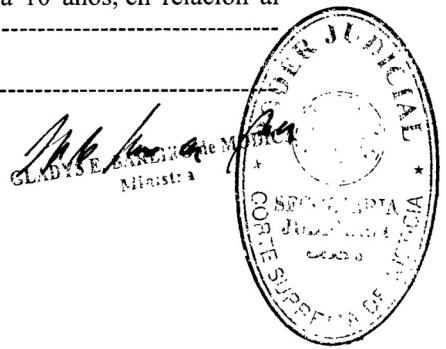 a 10 años, en relación al
GLADYS E. BAREIRO de MÓDICA
Ministra
PODER JUDICIAL
SECRETARIA
JUDICIAL
CORTE SUPREMA DE JUSTICIA